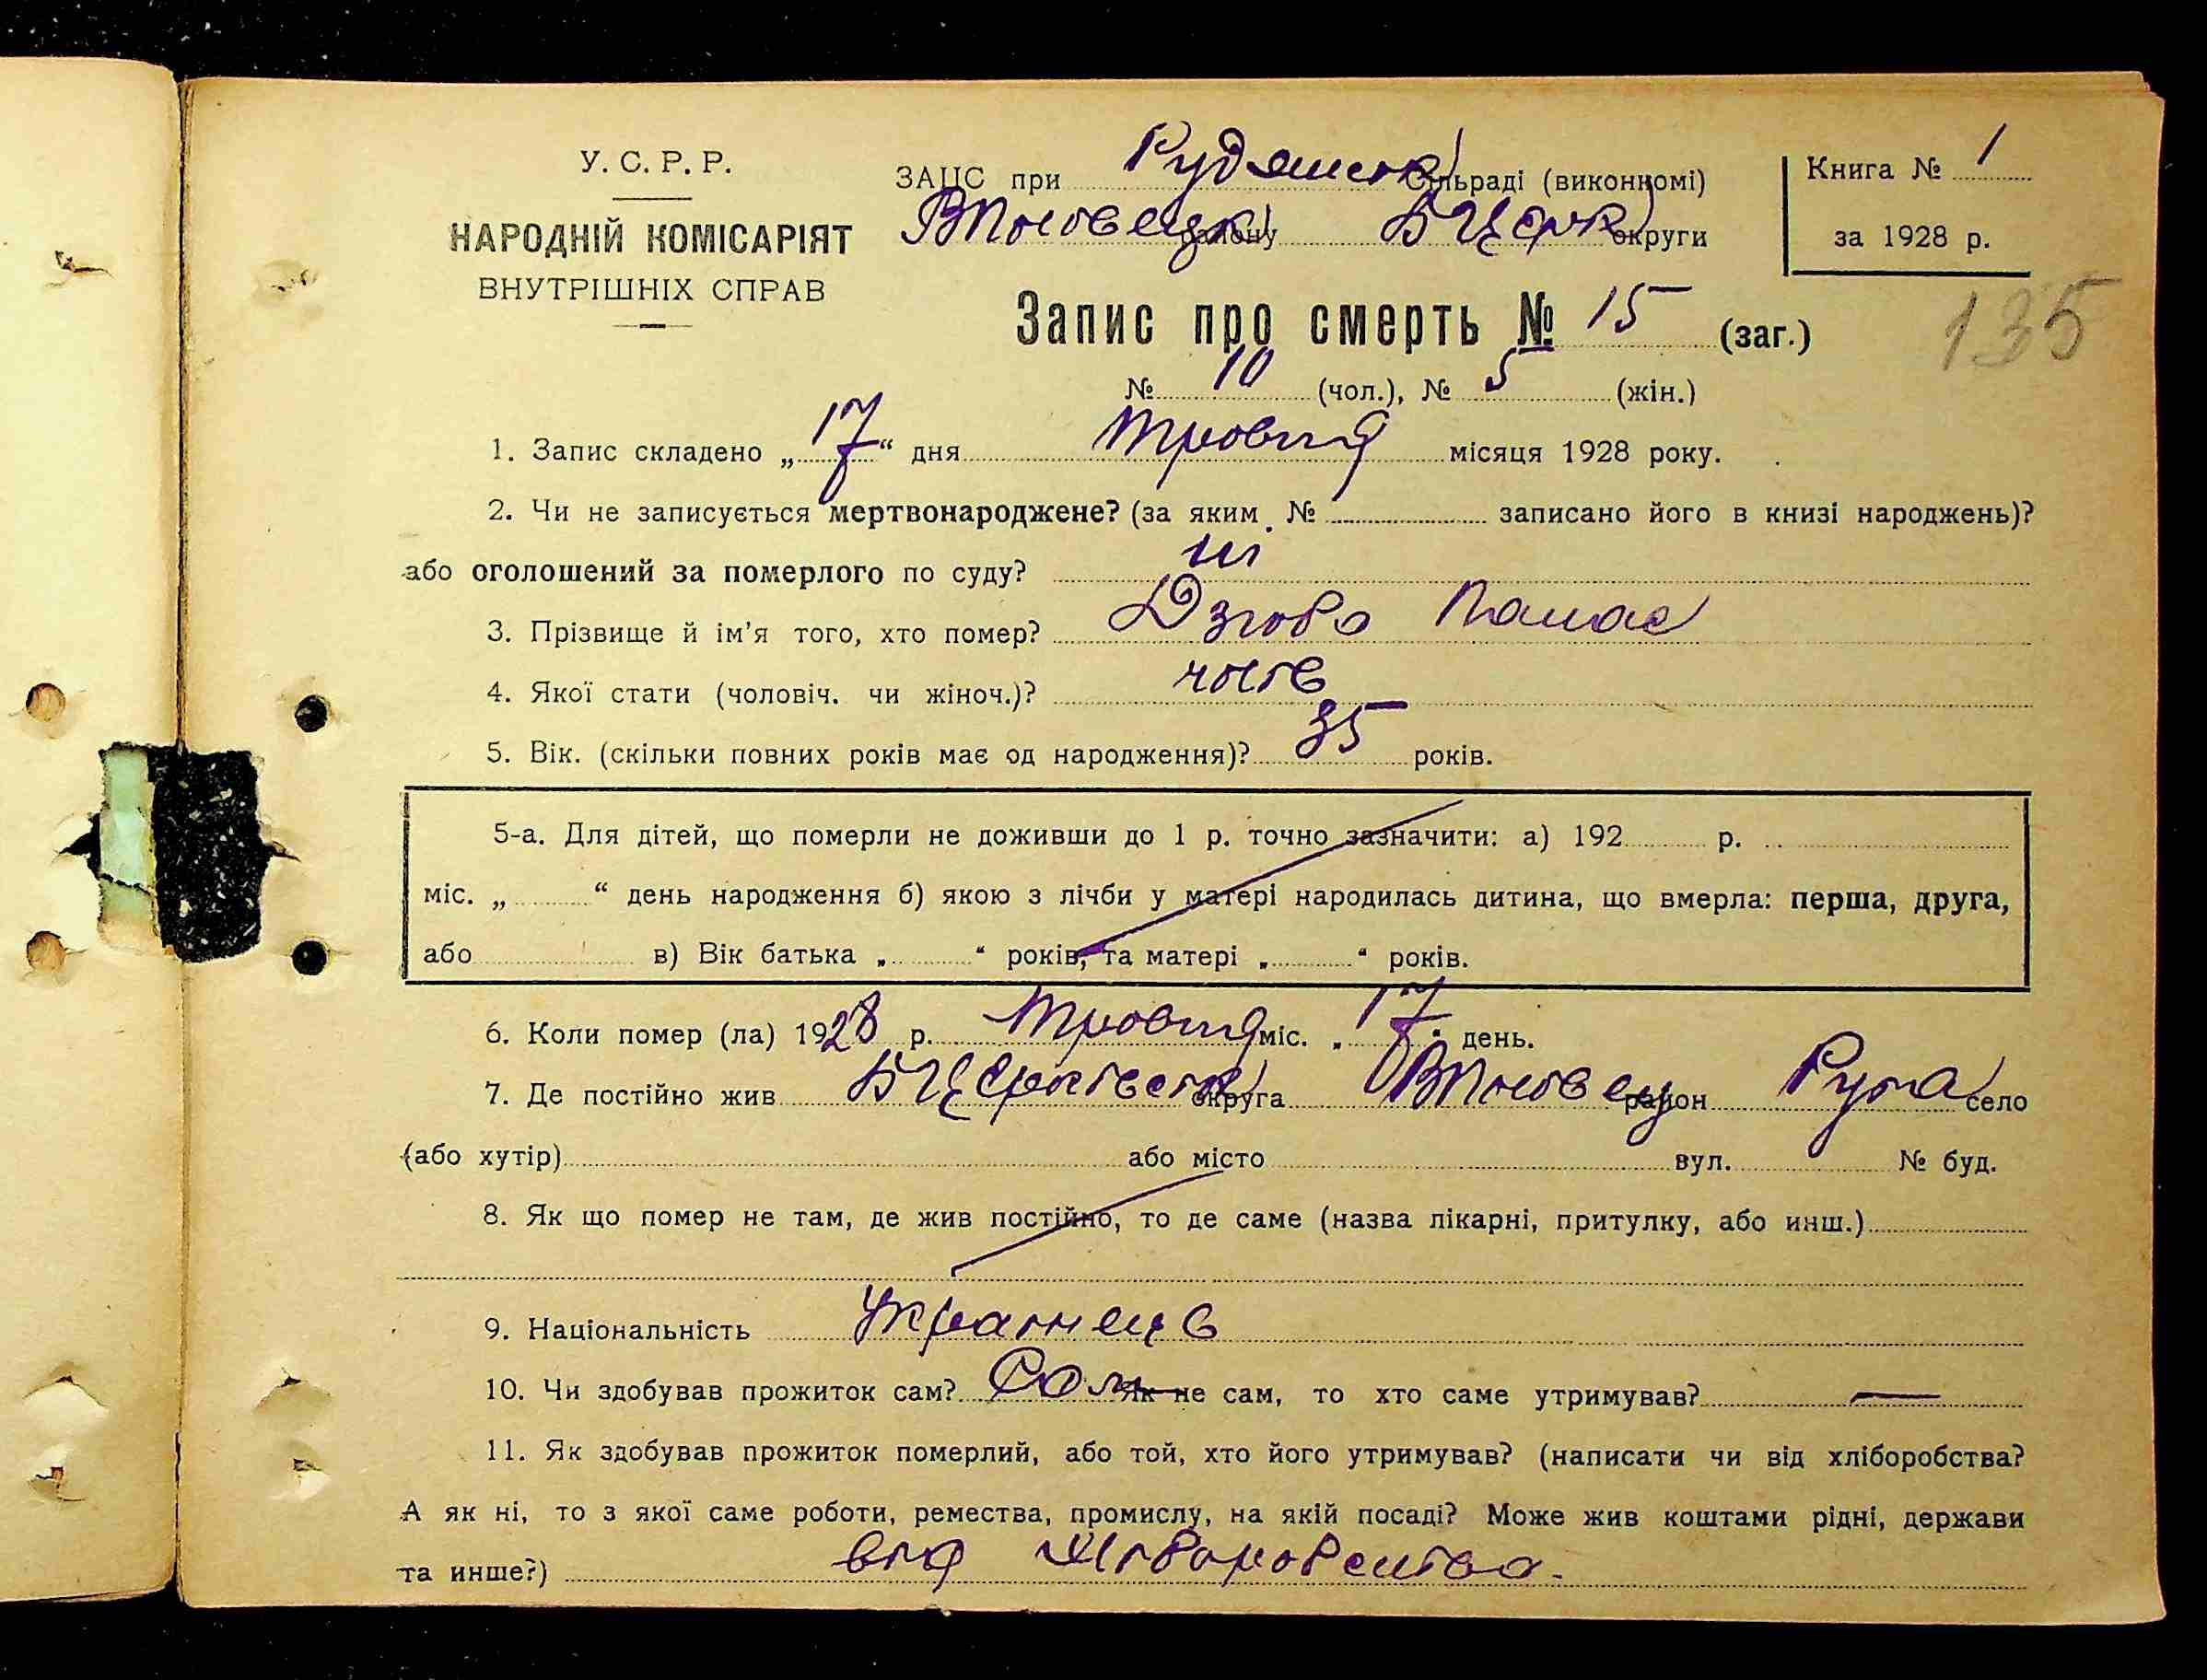 У. С. Р. Р.
НАРОДНІЙ КОМІСАРІЯТ
ВНУТРІШНІХ СПРАВ
ЗАЦС при Рудянськ Сільраді (виконкомі)
району БЦерк округи
Книга № 1
за 1928 р.
Запис про смерть № 15 (заг.)
135
№ 10 (чол.), № 5 (жін.)
1. Запис складено „17“ дня травня місяця 1928 року.
2. Чи не записується мертвонароджене? (за яким № записано його в книзі народжень)?
або оголошений за померлого по суду? ні
3. Прізвище й ім'я того, хто помер? Дзюба Панас
4. Якої стати (чоловіч. чи жіноч.)? чолів
5. Вік. (скільки повних років має од народження)? 35 років.
5-а. Для дітей, що померли не доживши до 1 р. точно зазначити: а) 192 р.
міс. „ “ день народження б) якою з лічби у матері народилась дитина, що вмерла: перша, друга,
або в) Вік батька „ “ років, та матері „ “ років.
6. Коли помер (ла) 1928 р. травня міс. „17“ день.
7. Де постійно жив БЦерківськ округа район Руда село
(або хутір) або місто вул. № буд.
8. Як що помер не там, де жив постійно, то де саме (назва лікарні, притулку, або инш.)
9. Національність Українець
10. Чи здобував прожиток сам? Сам Як не сам, то хто саме утримував? —
11. Як здобував прожиток померлий, або той, хто його утримував? (написати чи від хліборобства?
А як ні, то з якої саме роботи, ремества, промислу, на якій посаді? Може жив коштами рідні, держави
та инше?) від хліборобства.